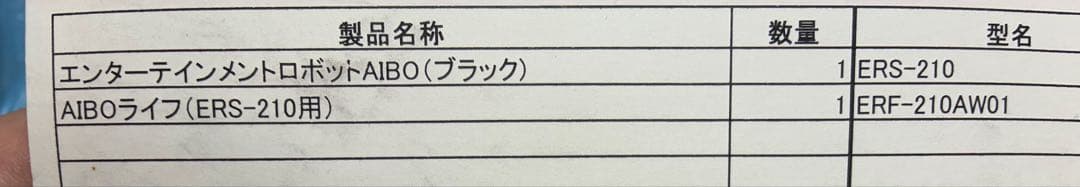 製品名称 数量 型名
エンターテインメントロボットAIBO(ブラック) 1 ERS-210
AIBOライフ(ERS-210用) 1 ERF-210AW01